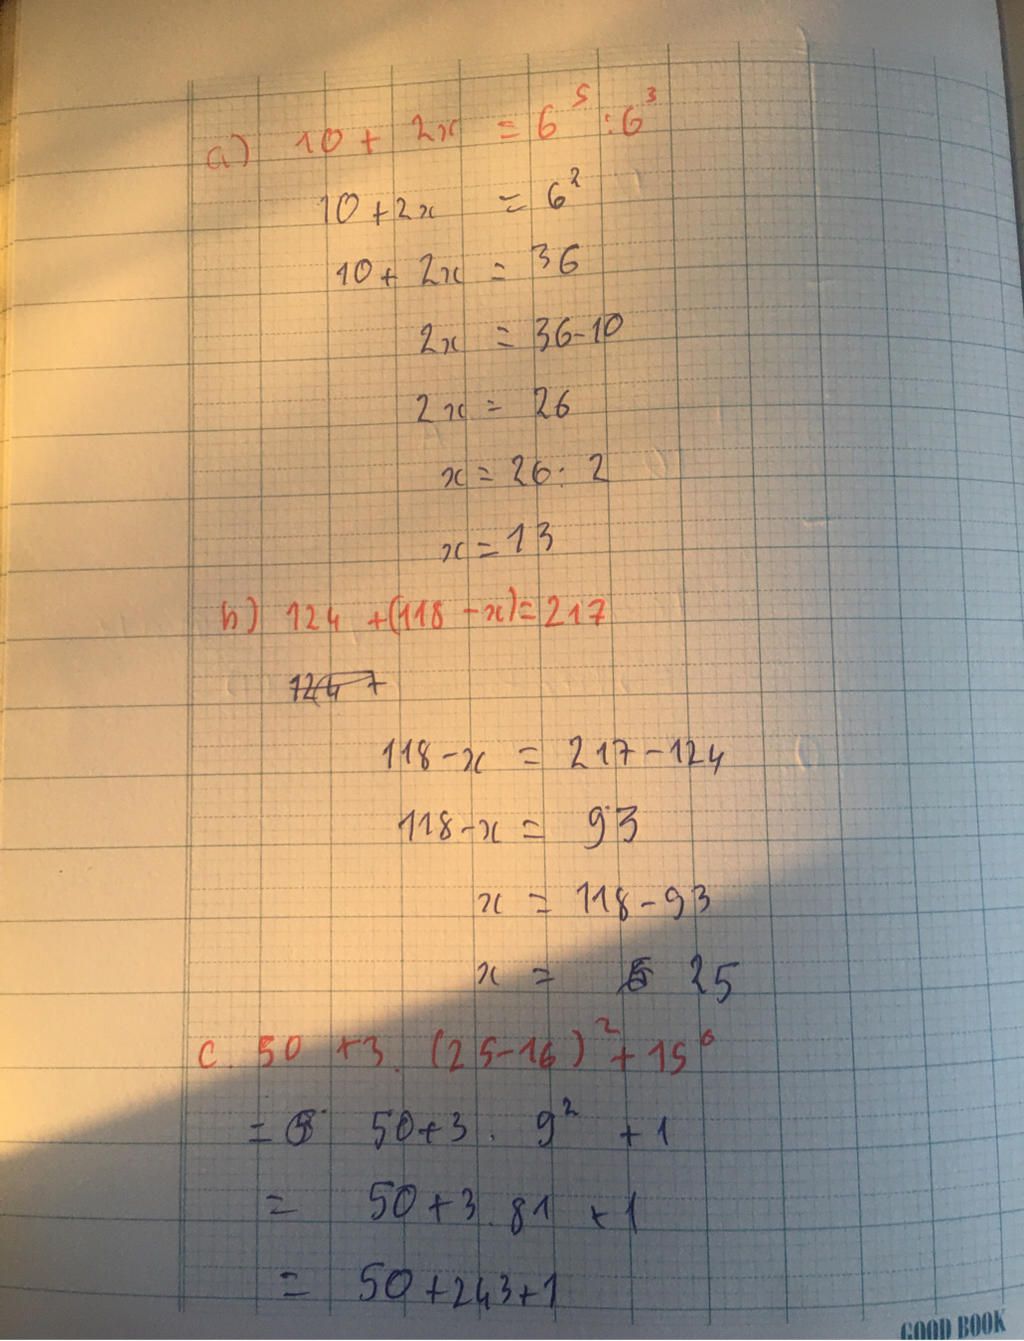 a) 10 + 2x = 6⁵ : 6³
10 + 2x = 6²
10 + 2x = 36
2x = 36 - 10
2x = 26
x = 26 : 2
x = 13
b) 124 + (118 - x) = 217
118 - x = 217 - 124
118 - x = 93
x = 118 - 93
x = 25
c. 50 + 3. (25 - 16)² + 15⁰
= 50 + 3 . 9² + 1
= 50 + 3 . 81 + 1
= 50 + 243 + 1
GOOD BOOK